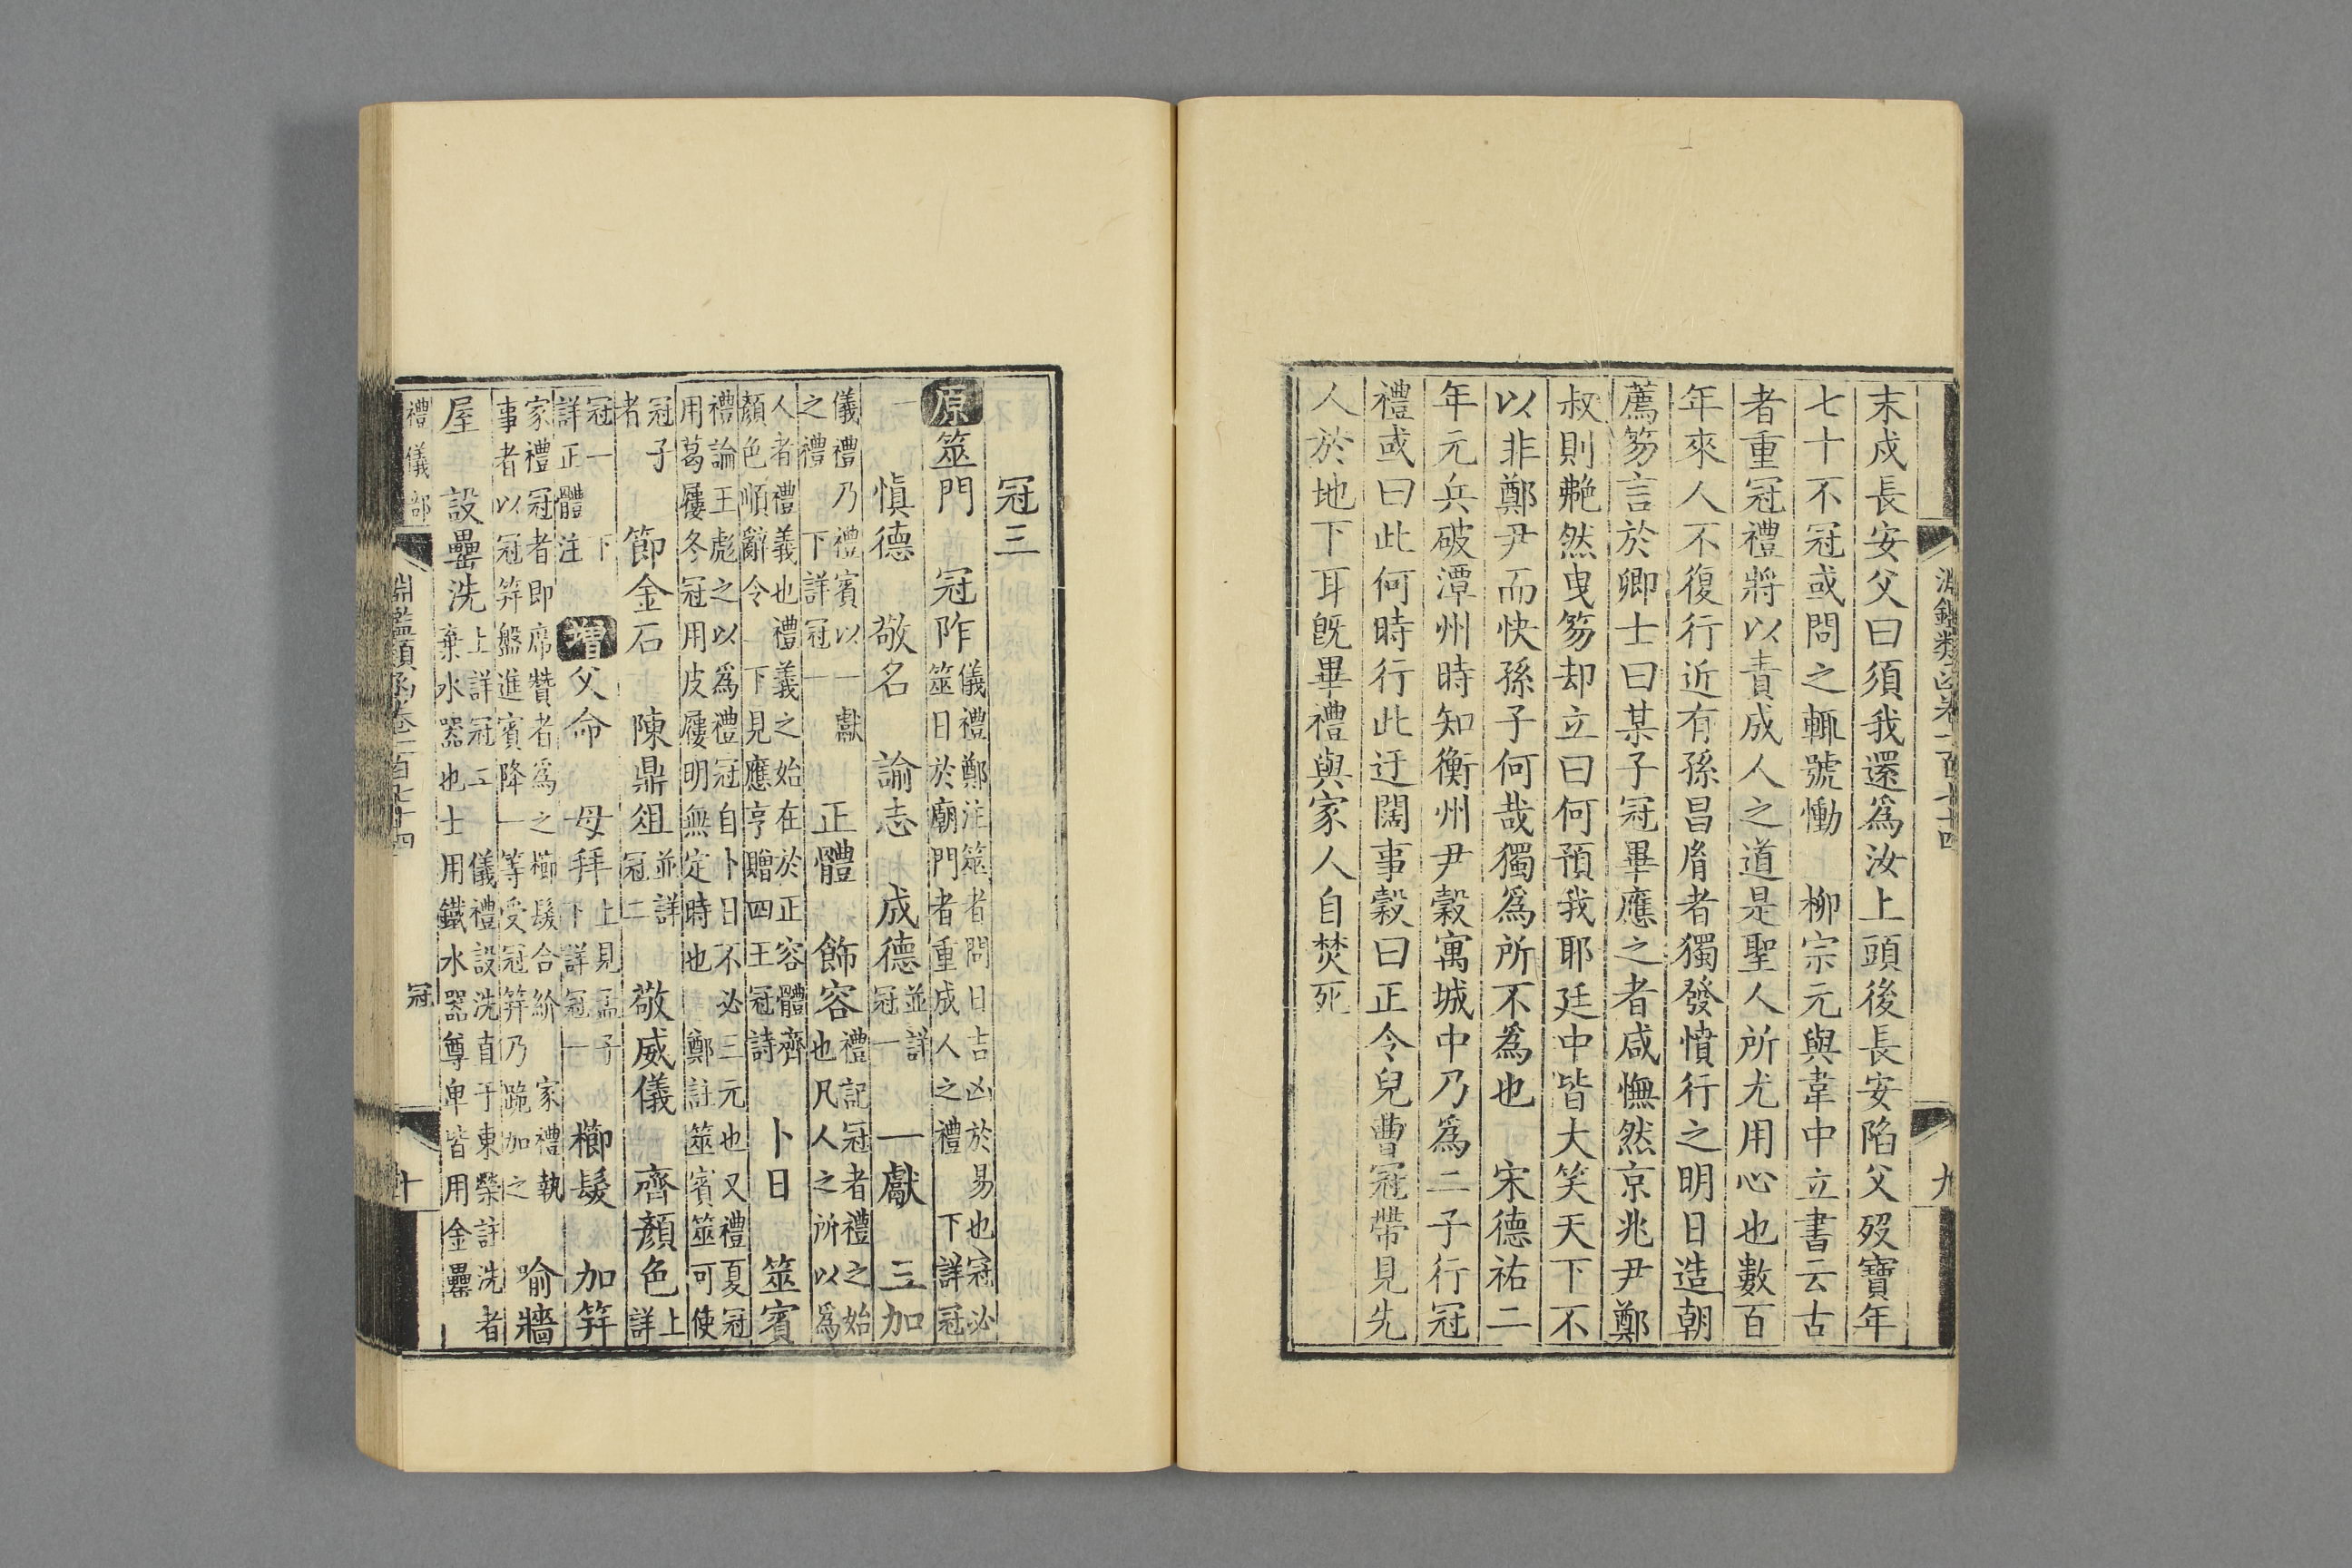 末戍長安父曰須我還爲汝上頭後長安陷父歿寶年
七十不冠或問之輒號慟　柳宗元與韋中立書云古
者重冠禮將以責成人之道是聖人所尤用心也數百
年來人不復行近有孫昌胤者獨發憤行之明日造朝
薦笏言於卿士曰某子冠畢應之者咸憮然京兆尹鄭
叔則艴然曳笏却立曰何預我耶廷中皆大笑天下不
以非鄭尹而快孫子何哉獨爲所不爲也　宋德祐二
年元兵破潭州時知衡州尹穀寓城中乃爲二子行冠
禮或曰此何時行此迂闊事穀曰正令兒曹冠帶見先
人於地下耳旣畢禮與家人自焚死
九
冠三
原筮門　冠阼儀禮鄭注筮者問日吉凶於易也冠必
筮日於廟門者重成人之禮　下詳冠
一　愼德　敬名　諭志　成德並詳冠一　一獻　三加
儀禮乃禮賓以一獻
之禮　下詳冠一　正體　飾容禮記冠者禮之始
也凡人之所以爲
人者禮義也禮義之始在於正容體齊
顏色順辭令　下見應亨贈四王冠詩　卜日　筮賓
禮論王彪之以爲禮冠自卜日不必三元也又禮夏冠
用葛屨冬冠用皮屨明無定時也　鄭註筮賓筮可使
冠子
者　節金石　陳鼎俎並詳冠二　敬威儀　齊顏色上詳
冠一　下
詳正體注　增父命　母拜上見孟子
下詳冠一　櫛髮　加筓
家禮冠者即席贊者爲之櫛髮合紒　家禮執
事者以冠筓盤進賓降一等受冠筓乃跪加之　喻牆
屋　設罍洗上詳冠二　儀禮設洗直于東榮註洗者
棄水器也士用鐵水器尊卑皆用金罍
禮儀部　淵鑑類函卷一百七十四　冠　十